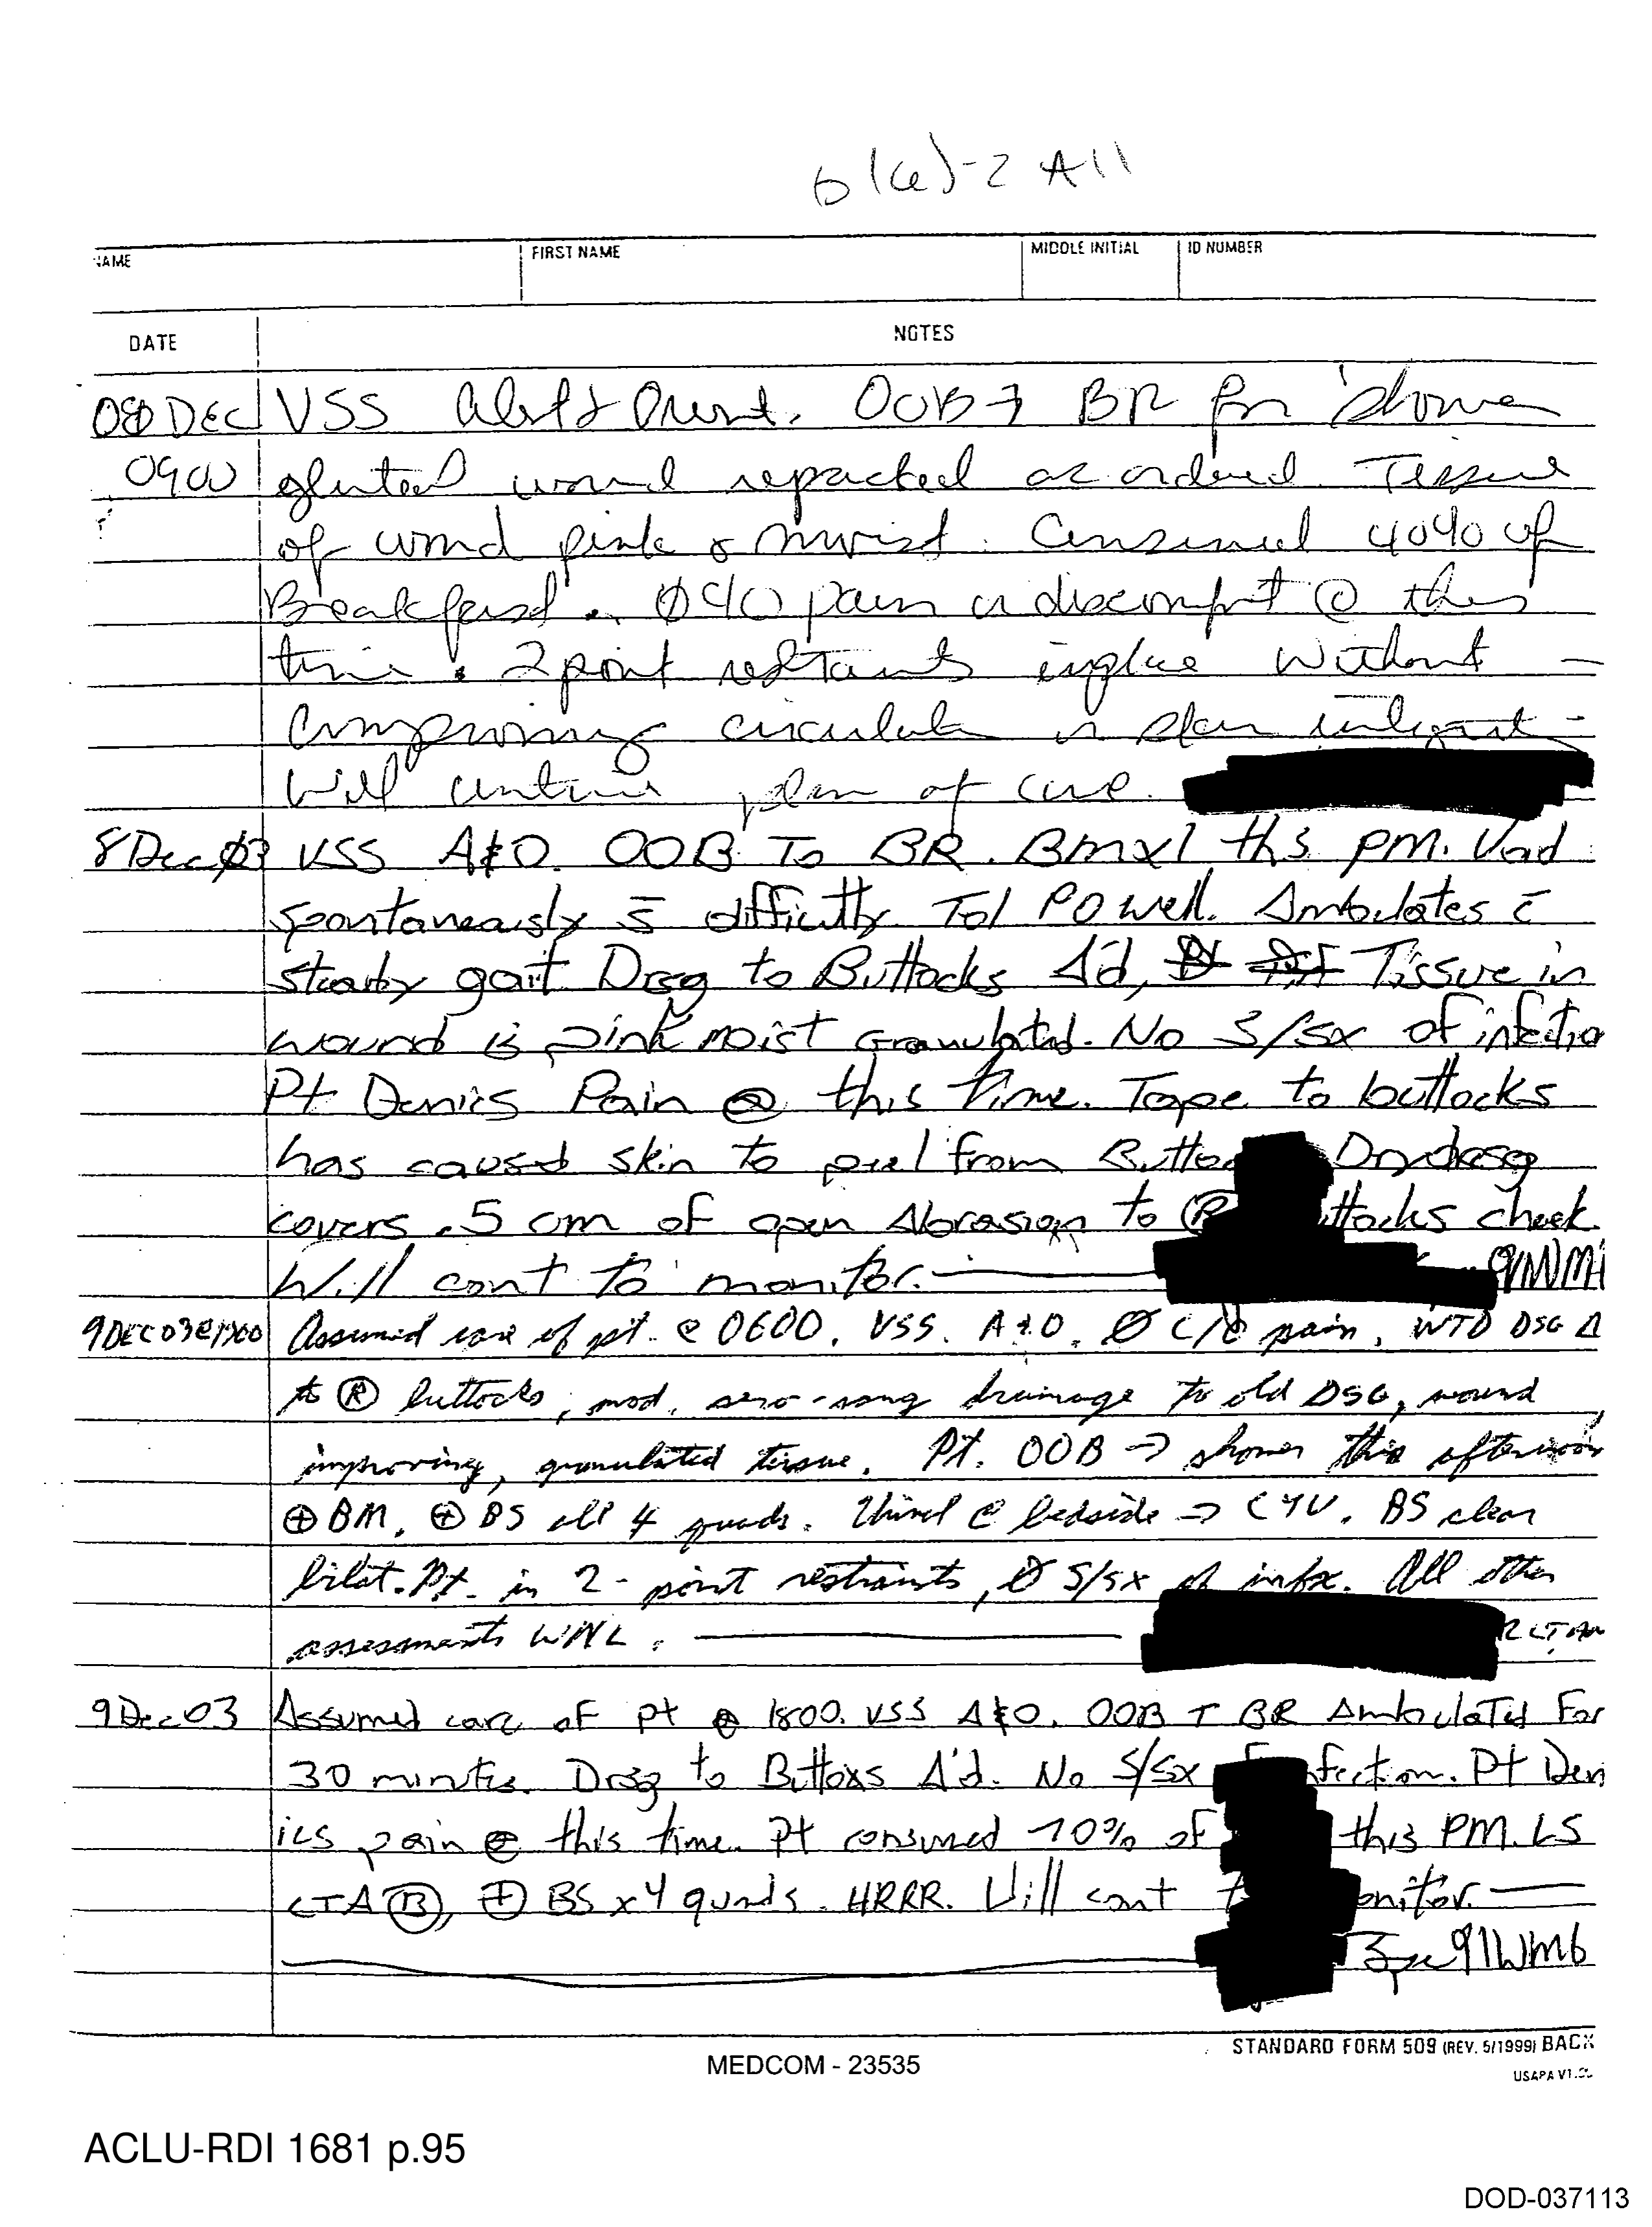 b(6)-2 All
NAME FIRST NAME MIDDLE INITIAL ID NUMBER
DATE NOTES
08 DEC VSS alert & Orient. OOB → BR for shower
0900 gluteal wound repacked as ordered. Tissue
of wound pink & moist. Consumed 40% of
Breakfast. Ø c/o pain or discomfort @ this
time. 2 point restraints inplace without —
compromising circulation or skin integrity -
Will continue plan of care.
8 Dec 03 VSS A&O. OOB To BR. BMx1 ths PM. Void
spontaneously s̄ difficulty Tol PO well. Ambulates c̄
steady gait Drsg to Buttocks Δ'd, Tissue in
wound is pink moist Granulated. No S/Sx of infectio
Pt Denies Pain @ this time. Tape to buttocks
has caused skin to peel from Butto Dry drsg
covers .5 cm of open Abrasion to (R) ttocks cheek.
Will cont to monitor. —
9 DEC 03 @ Assumed care of pt. @ 0600. VSS. A&O. Ø c/o pain. WTD DSG Δ
to (R) buttocks, mod. sero-sang drainage to old DSG, wound
improving, granulated tissue. Pt. OOB → shower this afternoon
⊕ BM. ⊕ BS all 4 quads. Urinal @ bedside → CYU. BS clear
bilat. Pt. in 2-point restraints, Ø S/sx of infx. All other
assessments WNL. —
9 Dec 03 Assumed care of pt @ 1800. VSS A&O. OOB T BR Ambulated For
30 mintes. Drsg to Buttoxs Δ'd. No S/Sx fection. Pt Den
ies pain @ this time. Pt consumed 70% of this PM. LS
CTA (B), ⊕ BS x 4 quads. HRRR. Will cont t onitor. —
Spc 91WM6
STANDARD FORM 509 (REV. 5/1999) BACK
USAPA V1.
MEDCOM - 23535
ACLU-RDI 1681 p.95
DOD-037113